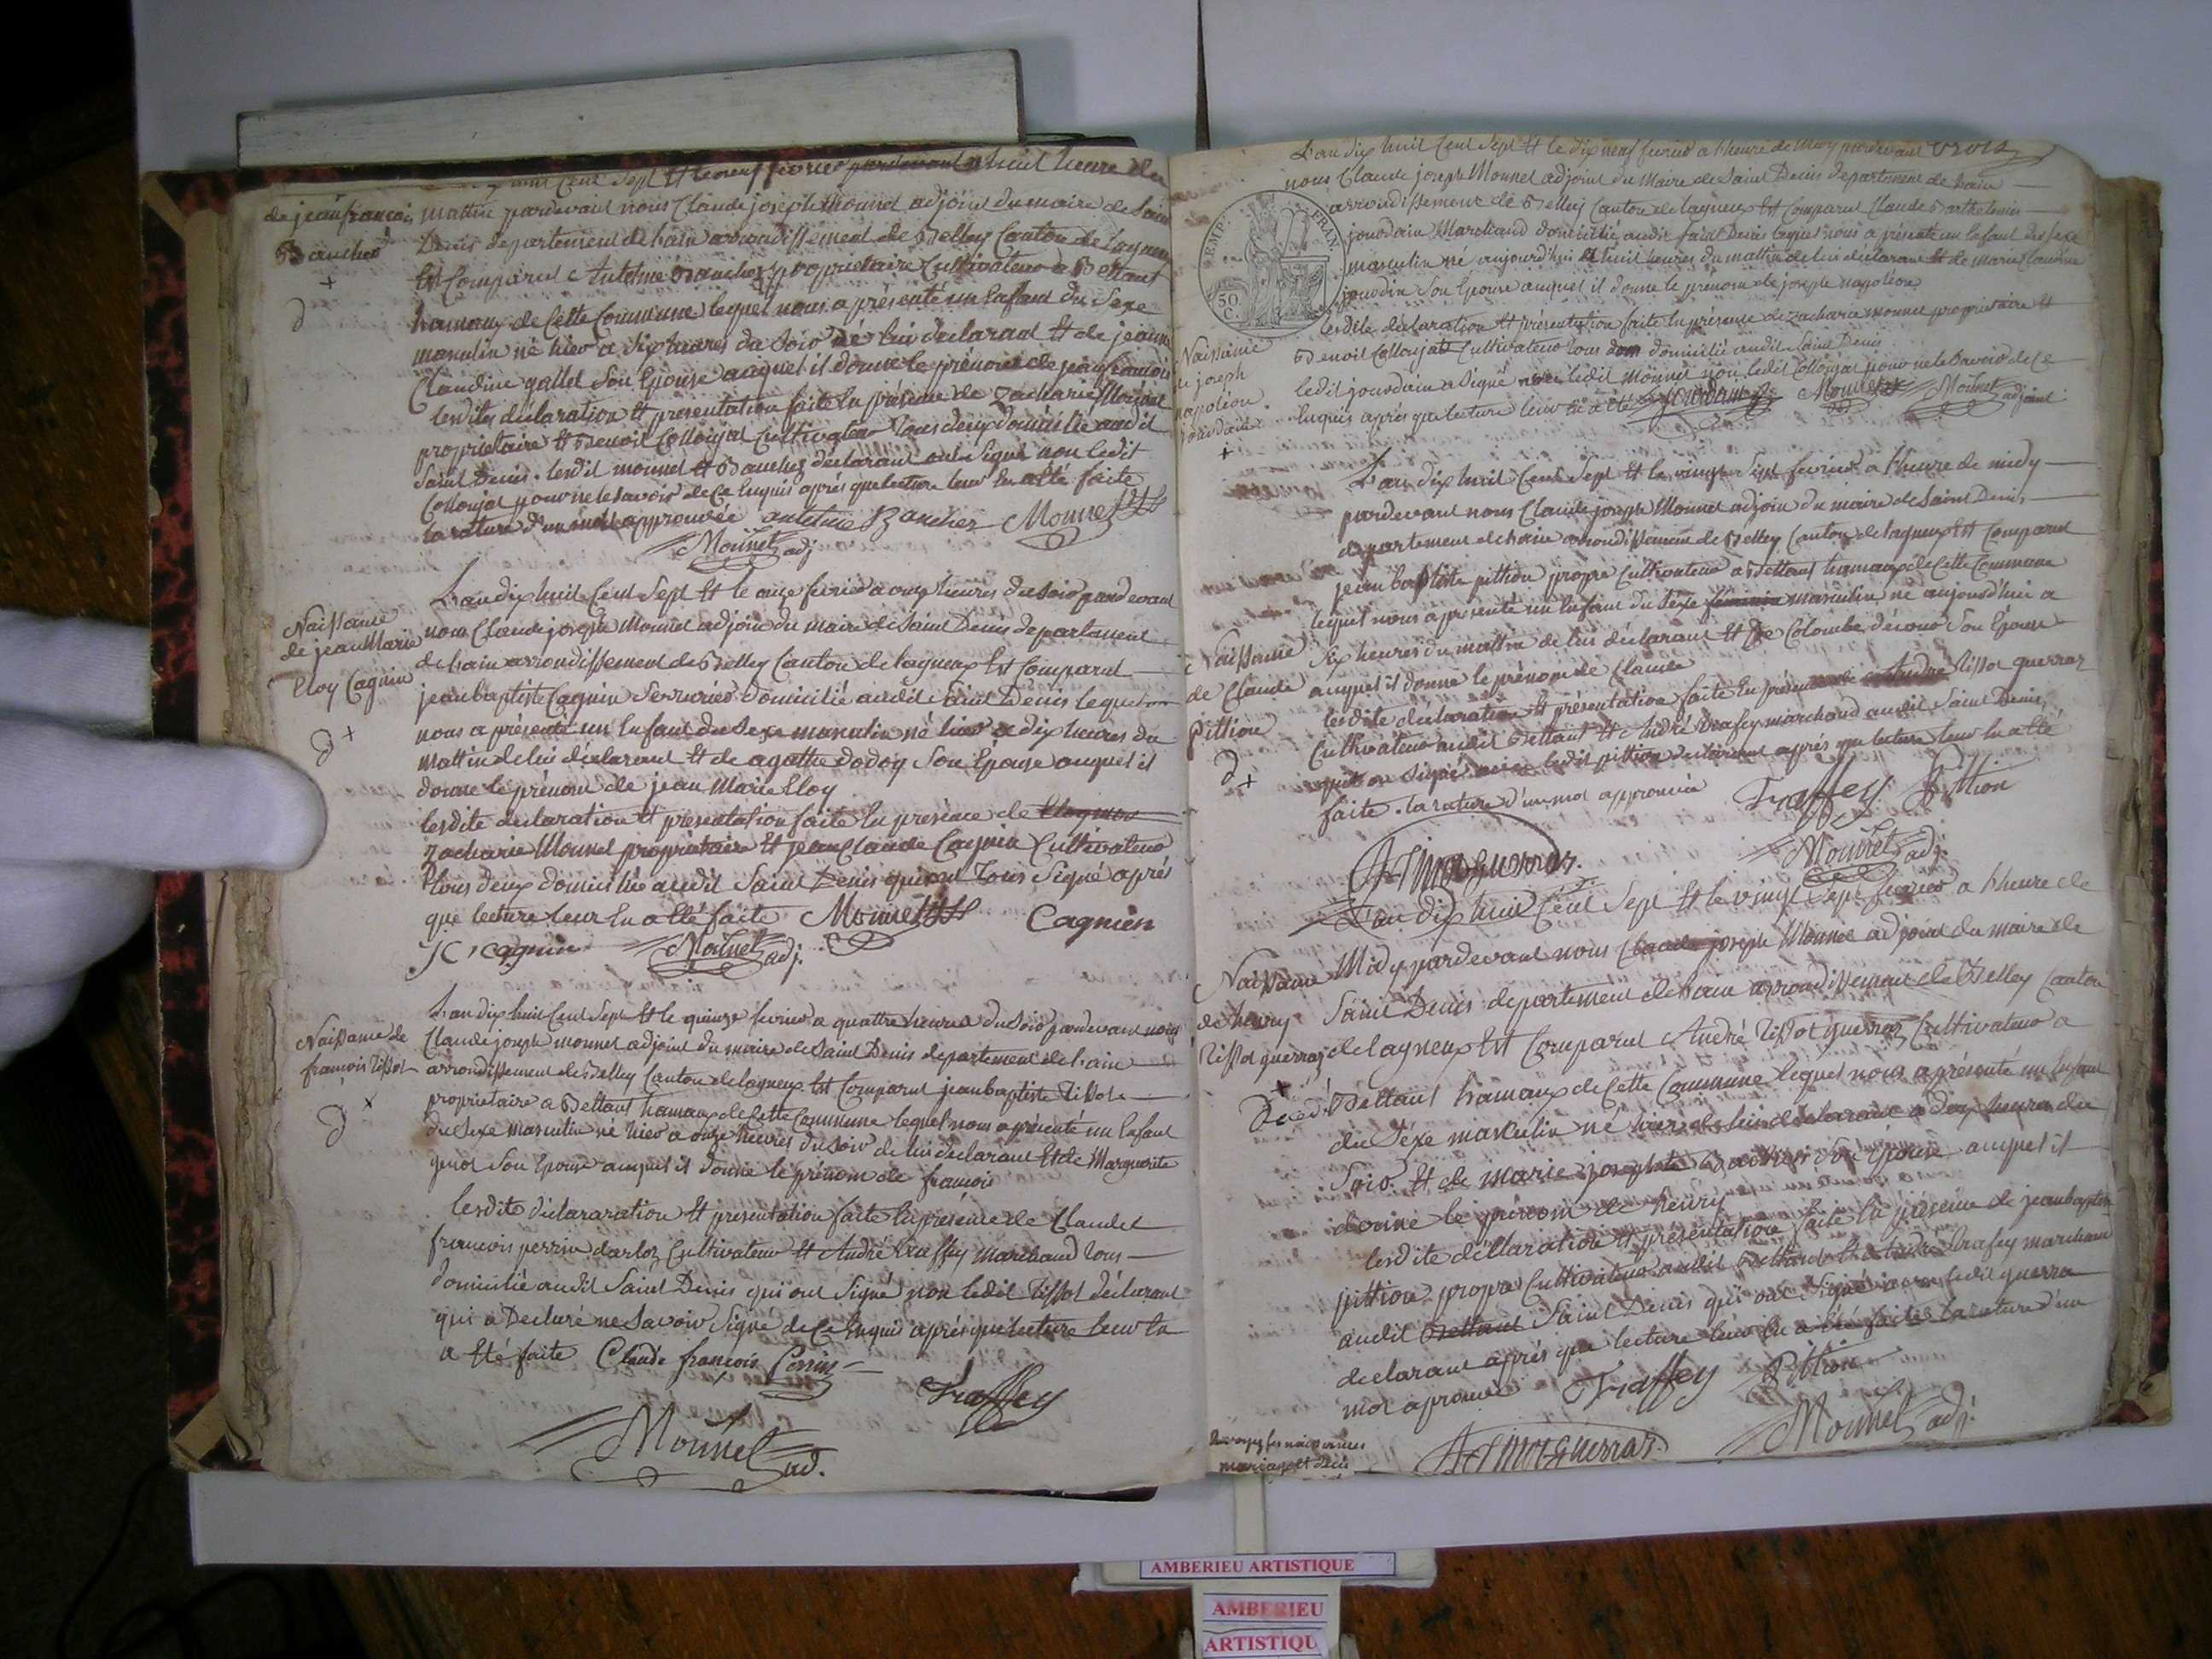 huit Cent Sept et le neuf fevrier a huit heure du
de jean françois
Bancher
+
d
mattin pardevant nous Claude joseph Monnet adjoint du maire de Saint
Denis departement de hain arrondissement de Belley Canton de lagneux
Est Comparut Antelme Bancher proprietaire Cultivateur a Bettant
hamaux de Cette Commune lequel nous a présenté un Enfant du Sexe
masculin né hier a Six heures du Soir de lui declarant Et de jeanne
Claudine gallet Son Epouse auquel il donne le prénom de jean francois
lesdites déclaration Et presentation faite En présence de Zacharie Monnet
proprietaire Et Benoit Collonjat Cultivateur tous deux domicilié audit
Saint Denis. lesdit monnet Et Bancher déclarant ont Signé non ledit
Collonjat pour ne le savoir de Ce Enquis après que lecture leur En a Eté faite
la rature d'un mot approuvée antelme Bancher Monnet
Monnet adj
Naissance
de jean Marie
Eloy Cagnin
d +
L'an dix huit Cent Sept Et le onze fevrier a onze heures du Soir pardevant
nous Claude joseph Monnet adjoin du maire de Saint Denis departement
de hain arrondissement de Belley Canton de lagneux Est Comparut
jean baptiste Cagnin Serrurier domicilié audit Saint Denis lequel
nous a présenté un Enfant du Sexe masculin né hier a dix heures du
mattin de lui déclarant Et de agathe dodoy Son Epouse auquel il
donne le prénom de jean Marie Eloy
lesdite declaration Et presentation faite En presence de
Zacharie Monnet proprietaire Et jean Claude Cagnin Cultivateur
tous deux domicilié audit Saint Denis qui ont tous Signé après
que lecture leur En a Eté faite Monnet Cagnien
JC cagnin Monnet adj.
Naissance de
françois tissot
x
d
L'an dix huit Cent Sept Et le quinze fevrier a quattre heures du Soir pardevant nous
Claude joseph monnet adjoint du maire de Saint Denis departement de hain
arrondissement de Belley Canton de lagneux Est Comparut jean baptiste tissot
proprietaire a Bettant hamaux de Cette Commune lequel nous a présenté un Enfant
du Sexe masculin né hier a onze heures du Soir de lui declarant Et de Marguerite
Son Epouse auquel il donne le prénom de francois
lesdite déclararation Et presentation faite En presence de Claude
francois perrin Cultivateur Et André traffey marchand tous
domicilié audit Saint Denis qui ont Signé non ledit tissot déclarant
qui a Declaré ne Savoir Signé de Ce Enquis après que lecture leur En
a Eté faite Claude françois Perrin
Traffey
Monnet ad.
L'an dix huit Cent Sept Et le dix neuf fevrier a l'heure de Midy pardevant
nous Claude joseph Monnet adjoint du Maire de Saint Denis departement de hain
arrondissement de Belley Canton de lagneux Est Comparut Claude Barthelemis
jourdain Marchand domicilié audit Saint Denis lequel nous a présenté un Enfant du Sexe
masculin né aujourd'hui a huit heures du mattin de lui déclarant Et de marie Claudine
jourdin Son Epouse auquel il donne le prénom de joseph napoléon
EMP. FRAN.
50
C.
lesdite déclaration Et présentation faite En présence de zacharie monnet proprietaire Et
Benoit Collonjatt Cultivateur tous domicilié audit Saint Denis
ledit jourdain a Signé avec ledit Monnet non ledit Collonjat pour ne le Savoir de Ce
Enquis après que lecture leur En a Eté Jourdain Monnet Monnet adjoint
Naissance
de joseph
napoléon
jourdain
+
L'an dix huit Cent Sept Et le vingt Sept fevrier a l'heure de midy
pardevant nous Claude joseph Monnet adjoin du maire de Saint Denis
departement de hain arrondissement de Belley Canton de lagneux Est Comparut
jean baptiste pittion propre Cultivateur a Bettant hamaux de Cette Commune
lequel nous a présenté un Enfant du Sexe feminin masculin né aujourd'hui a
Six heures du mattin de lui déclarant Et de Colombe Son Epouse
auquel il donne le prénom de Claude
Naissance
de Claude
Pittion
d
+
lesdite déclaration Et présentation faite En présence de André tissot guerraz
Cultivateur audit Bettant Et André trafey marchand audit Saint Denis
qui ont Signé avec ledit pittion déclarant après que lecture leur En a Eté
faite. la rature d'un mot approuvée Traffey Pittion
Monnet adj.
L'an dix huit Cent Sept Et le vingt Sept fevrier a l'heure de
Midy pardevant nous Claude joseph Monnet adjoint du maire de
Saint Denis departement de hain arrondissement de Belley Canton
de lagneux Est Comparut André tissot guerraz Cultivateur a
Naissance
de henry
tissot guerraz
+
Décédé
Bettant hamaux de Cette Commune lequel nous a présenté un Enfant
du Sexe masculin né hier de lui déclarant a dix heures du
Soir Et de marie josephte Son Epouse auquel il
donne le prénom de henry
lesdite déclaration Et présentation faite En présence de jean baptiste
pittion propre Cultivateur audit Bettant Et André trafey marchand
audit Bettant Saint Denis qui ont Signé avec ledit guerra
declarant après que lecture leur En a Eté faite la rature d'un
mot aprouvé Traffey Pittion
Monnet adj.
AMBERIEU ARTISTIQUE
AMBERIEU
ARTISTIQU